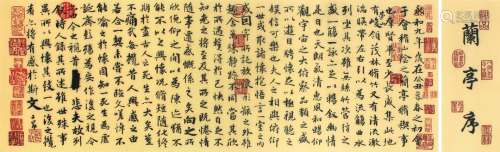 蘭亭序
永和九年歲在癸丑暮春之初會
于會稽山陰之蘭亭脩稧事
也羣賢畢至少長咸集此地
有崇山峻領茂林脩竹又有清流激
湍暎帶左右引以為流觴曲水
列坐其次雖無絲竹管弦之
盛一觴一詠亦足以暢敘幽情
是日也天朗氣清惠風和暢仰
觀宇宙之大俯察品類之盛
所以遊目騁懷足以極視聽之
娛信可樂也夫人之相與俯仰
一世或取諸懷抱悟言一室之內
或因寄所託放浪形骸之外雖
趣舍萬殊靜躁不同當其欣
於所遇暫得於己怏然自足不
知老之將至及其所之既惓情
隨事遷感慨係之矣向之所
欣俛仰之間以為陳迹猶不
能不以之興懷況脩短隨化終
期於盡古人云死生亦大矣豈
不痛哉每攬昔人興感之由
若合一契未嘗不臨文嗟悼不
能喻之於懷固知一死生為虛
誕齊彭殤為妄作後之視今
亦由今之視昔悲夫故列
敘時人錄其所述雖世殊事
異所以興懷其致一也後之攬
者亦將有感於斯文